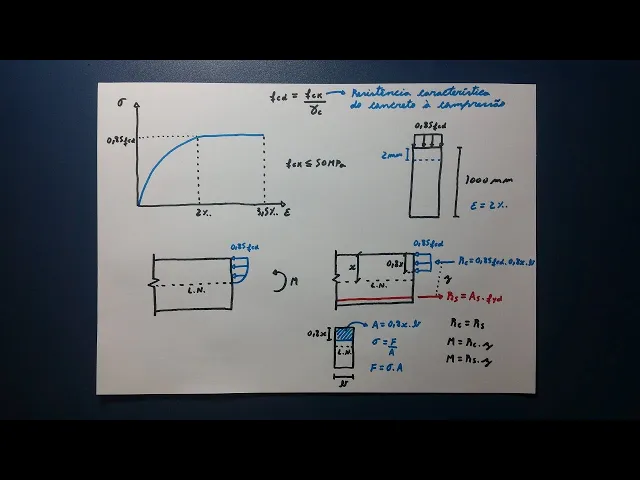 fcd = fck/γc → Resistência característica
do concreto à compressão
σ
0,85fcd
fck ≤ 50MPa
2‰ 3,5‰ ε
0,85fcd
2mm
1000mm
ε = 2‰
0,85fcd
L.N.
M
0,85fcd
x
0,8x
L.N.
Rc = 0,85fcd . 0,8x . b
z
Rs = As . fyd
0,8x
A = 0,8x . b
L.N.
b
σ = F/A
F = σ . A
Rc = Rs
M = Rc . z
M = Rs . z